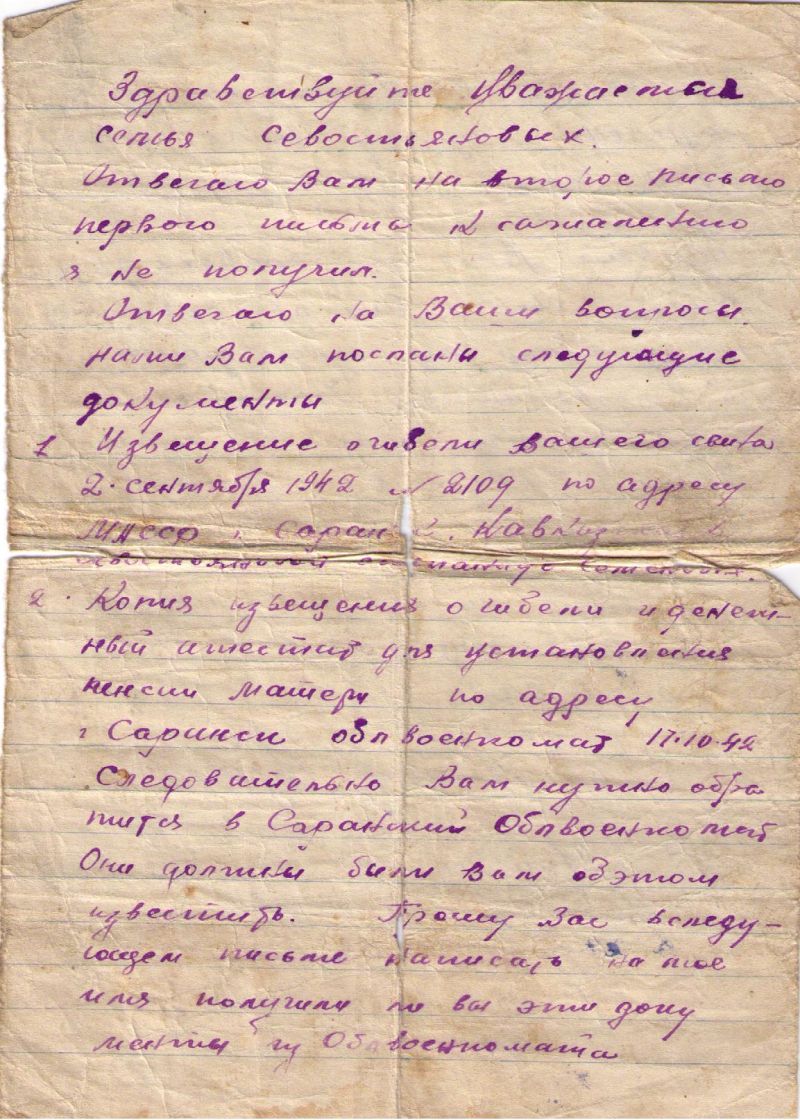 Здравствуйте Уважаемая
семья Севостьяновых.
Отвечаю Вам на второе письмо
первого письма к сожалению
я не получил.
Отвечаю на Ваши вопросы.
нами Вам посланы следующие
документы
1 Извещение о гибели вашего сына
2. сентября 1942 № 2109 по адресу
МАССР г. Саранск. Кавказ
2. Копия извещения о гибели и денеж-
ный атестат для установления
пенсии матери по адресу
г Саранск облвоенкомат 17.10.42
Следовательно Вам нужно обра
тится в Саранский Облвоенкомат
Они должны были вам обэтом
известить. Прошу Вас вследу-
ющем письме написать на мое
имя получили ли вы эти доку
менты из Облвоенкомата